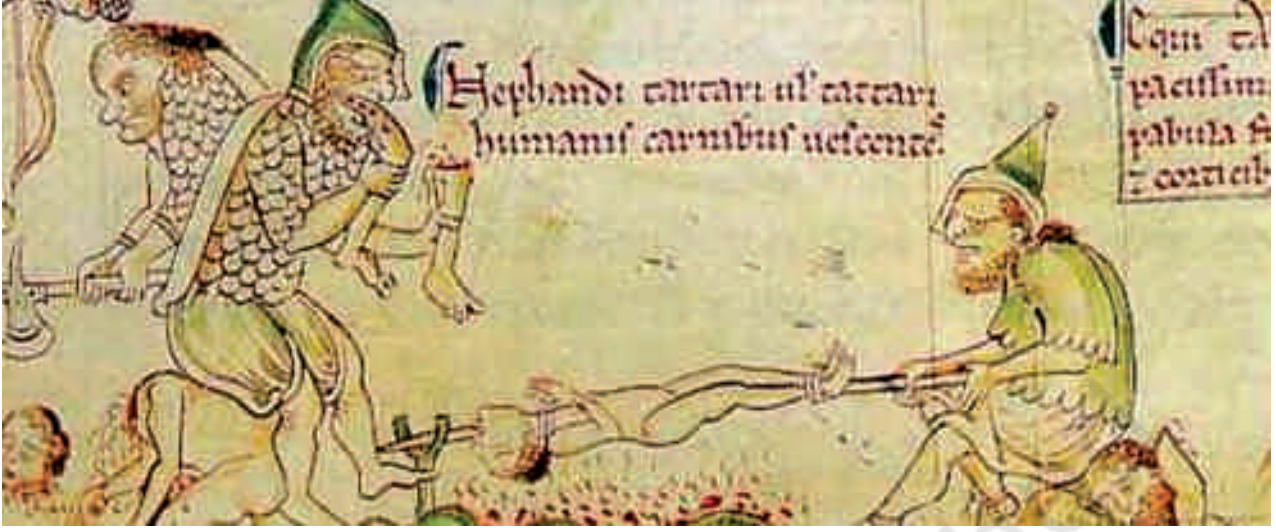 Nephandi tartari ul' tattari
humanis carnibus uescentes.
Equi ta
pacissim
pabula fr
⁊ corticib